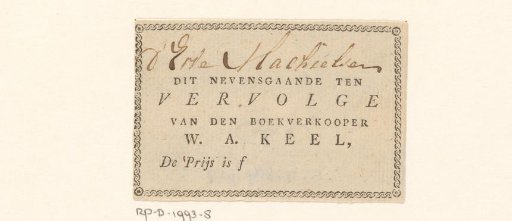 d'Erve Machielsen
DIT NEVENSGAANDE TEN
VERVOLGE
VAN DEN BOEKVERKOOPER
W. A. KEEL,
De Prijs is f
RP-D-1993-8